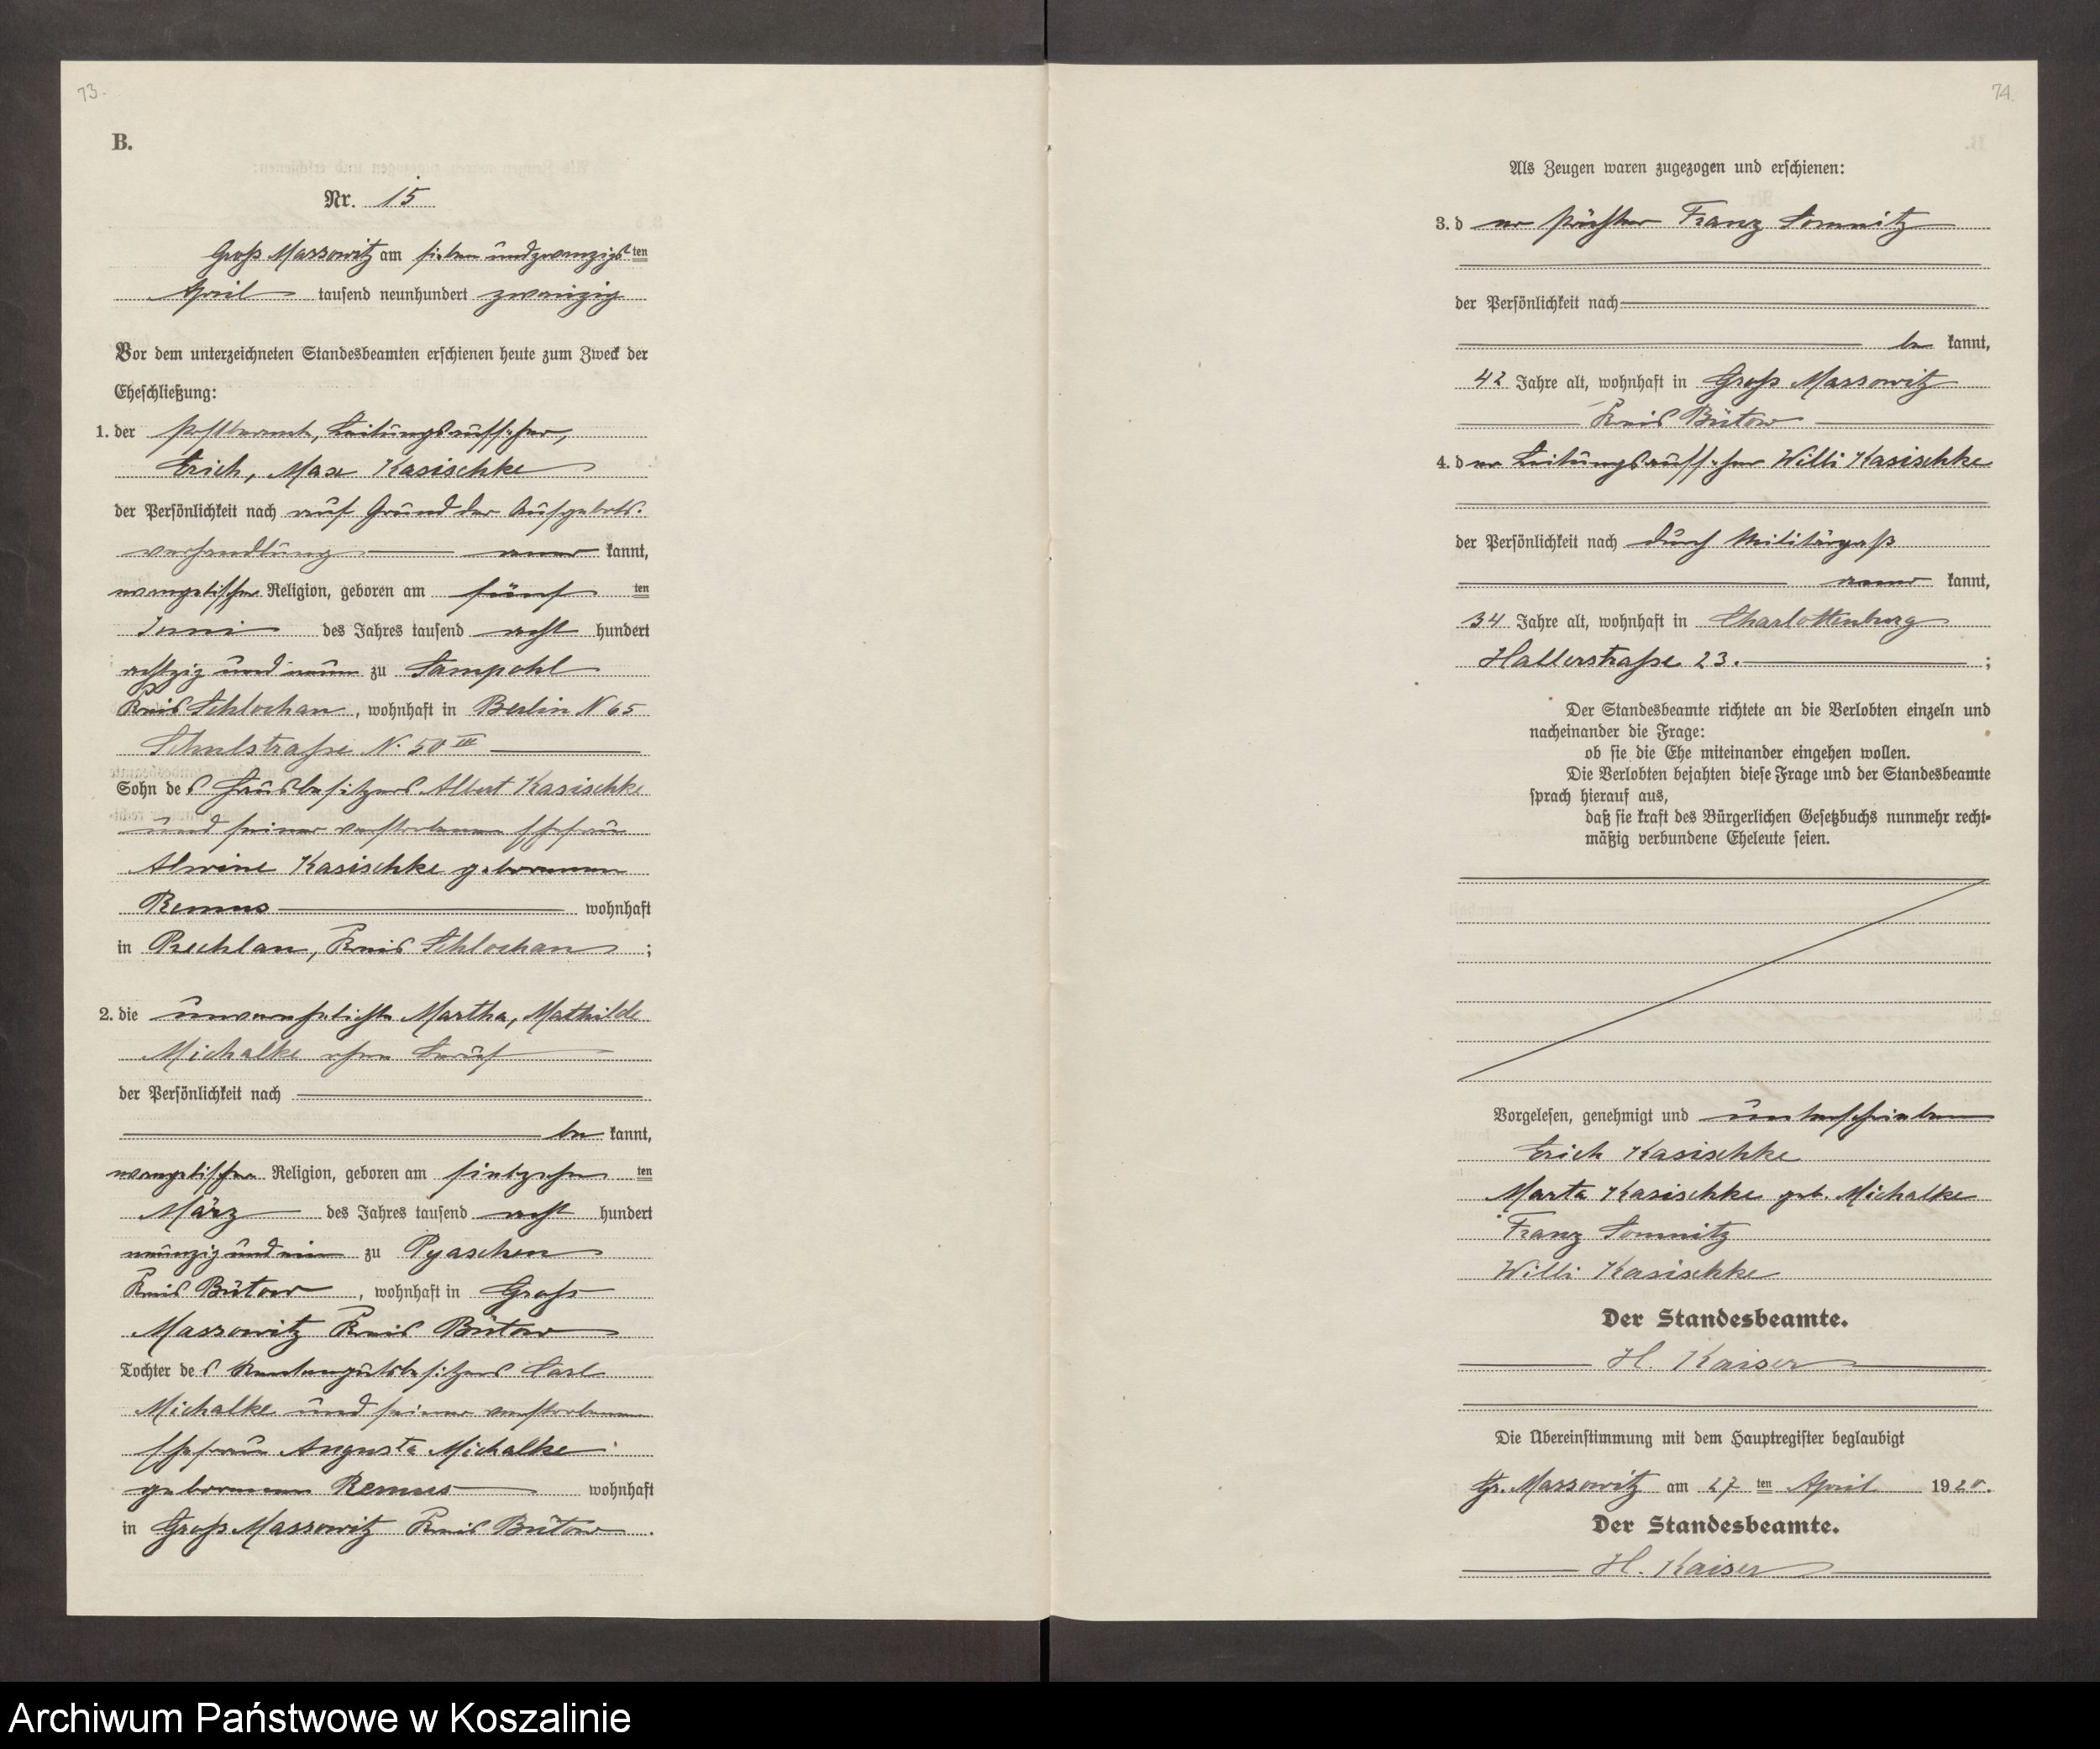 73.
B.
Nr. 15
Groß Massowitz am sieben und zwanzigsten
April tausend neunhundert zwanzig
Vor dem unterzeichneten Standesbeamten erschienen heute zum Zweck der
Eheschließung:
1. der Postbeamte, Leitungsaufseher,
Erich, Max Kasischke
der Persönlichkeit nach auf Grund der Aufgebots-
verhandlung aner kannt,
evangelischer Religion, geboren am fünf ten
Juni des Jahres tausend acht hundert
achtzig und neun zu Sampohl
Kreis Schlochau, wohnhaft in Berlin N 65
Schulstraße N. 50 III
Sohn des Hausbesitzers Albert Kasischke
und seiner verstorbenen Ehefrau
Alwine Kasischke geborenen
Remus wohnhaft
in Prechlau, Kreis Schlochau;
2. die unverehelichte Martha, Mathilde
Michalke ohne Beruf
der Persönlichkeit nach
be kannt,
evangelischer Religion, geboren am siebzehn ten
März des Jahres tausend acht hundert
neunzig und ein zu Pyaschen
Kreis Bütow, wohnhaft in Groß
Massowitz Kreis Bütow
Tochter des Rentengutsbesitzers Carl
Michalke und seiner verstorbenen
Ehefrau Augusta Michalke
geborenen Remus wohnhaft
in Groß Massowitz Kreis Bütow.
74.
Als Zeugen waren zugezogen und erschienen:
3. der Pächter Franz Somnitz
der Persönlichkeit nach
be kannt,
42 Jahre alt, wohnhaft in Groß Massowitz
Kreis Bütow
4. der Leitungsaufseher Willi Kasischke
der Persönlichkeit nach durch Militärpaß
aner kannt,
34 Jahre alt, wohnhaft in Charlottenburg
Hallerstraße 23.;
Der Standesbeamte richtete an die Verlobten einzeln und
nacheinander die Frage:
ob sie die Ehe miteinander eingehen wollen.
Die Verlobten bejahten diese Frage und der Standesbeamte
sprach hierauf aus,
daß sie kraft des Bürgerlichen Gesetzbuchs nunmehr recht-
mäßig verbundene Eheleute seien.
Vorgelesen, genehmigt und unterschrieben
Erich Kasischke
Marta Kasischke geb. Michalke
Franz Somnitz
Willi Kasischke
Der Standesbeamte.
H. Kaiser
Die Übereinstimmung mit dem Hauptregister beglaubigt
Gr. Massowitz am 27 ten April 1920.
Der Standesbeamte.
H. Kaiser
Archiwum Państwowe w Koszalinie